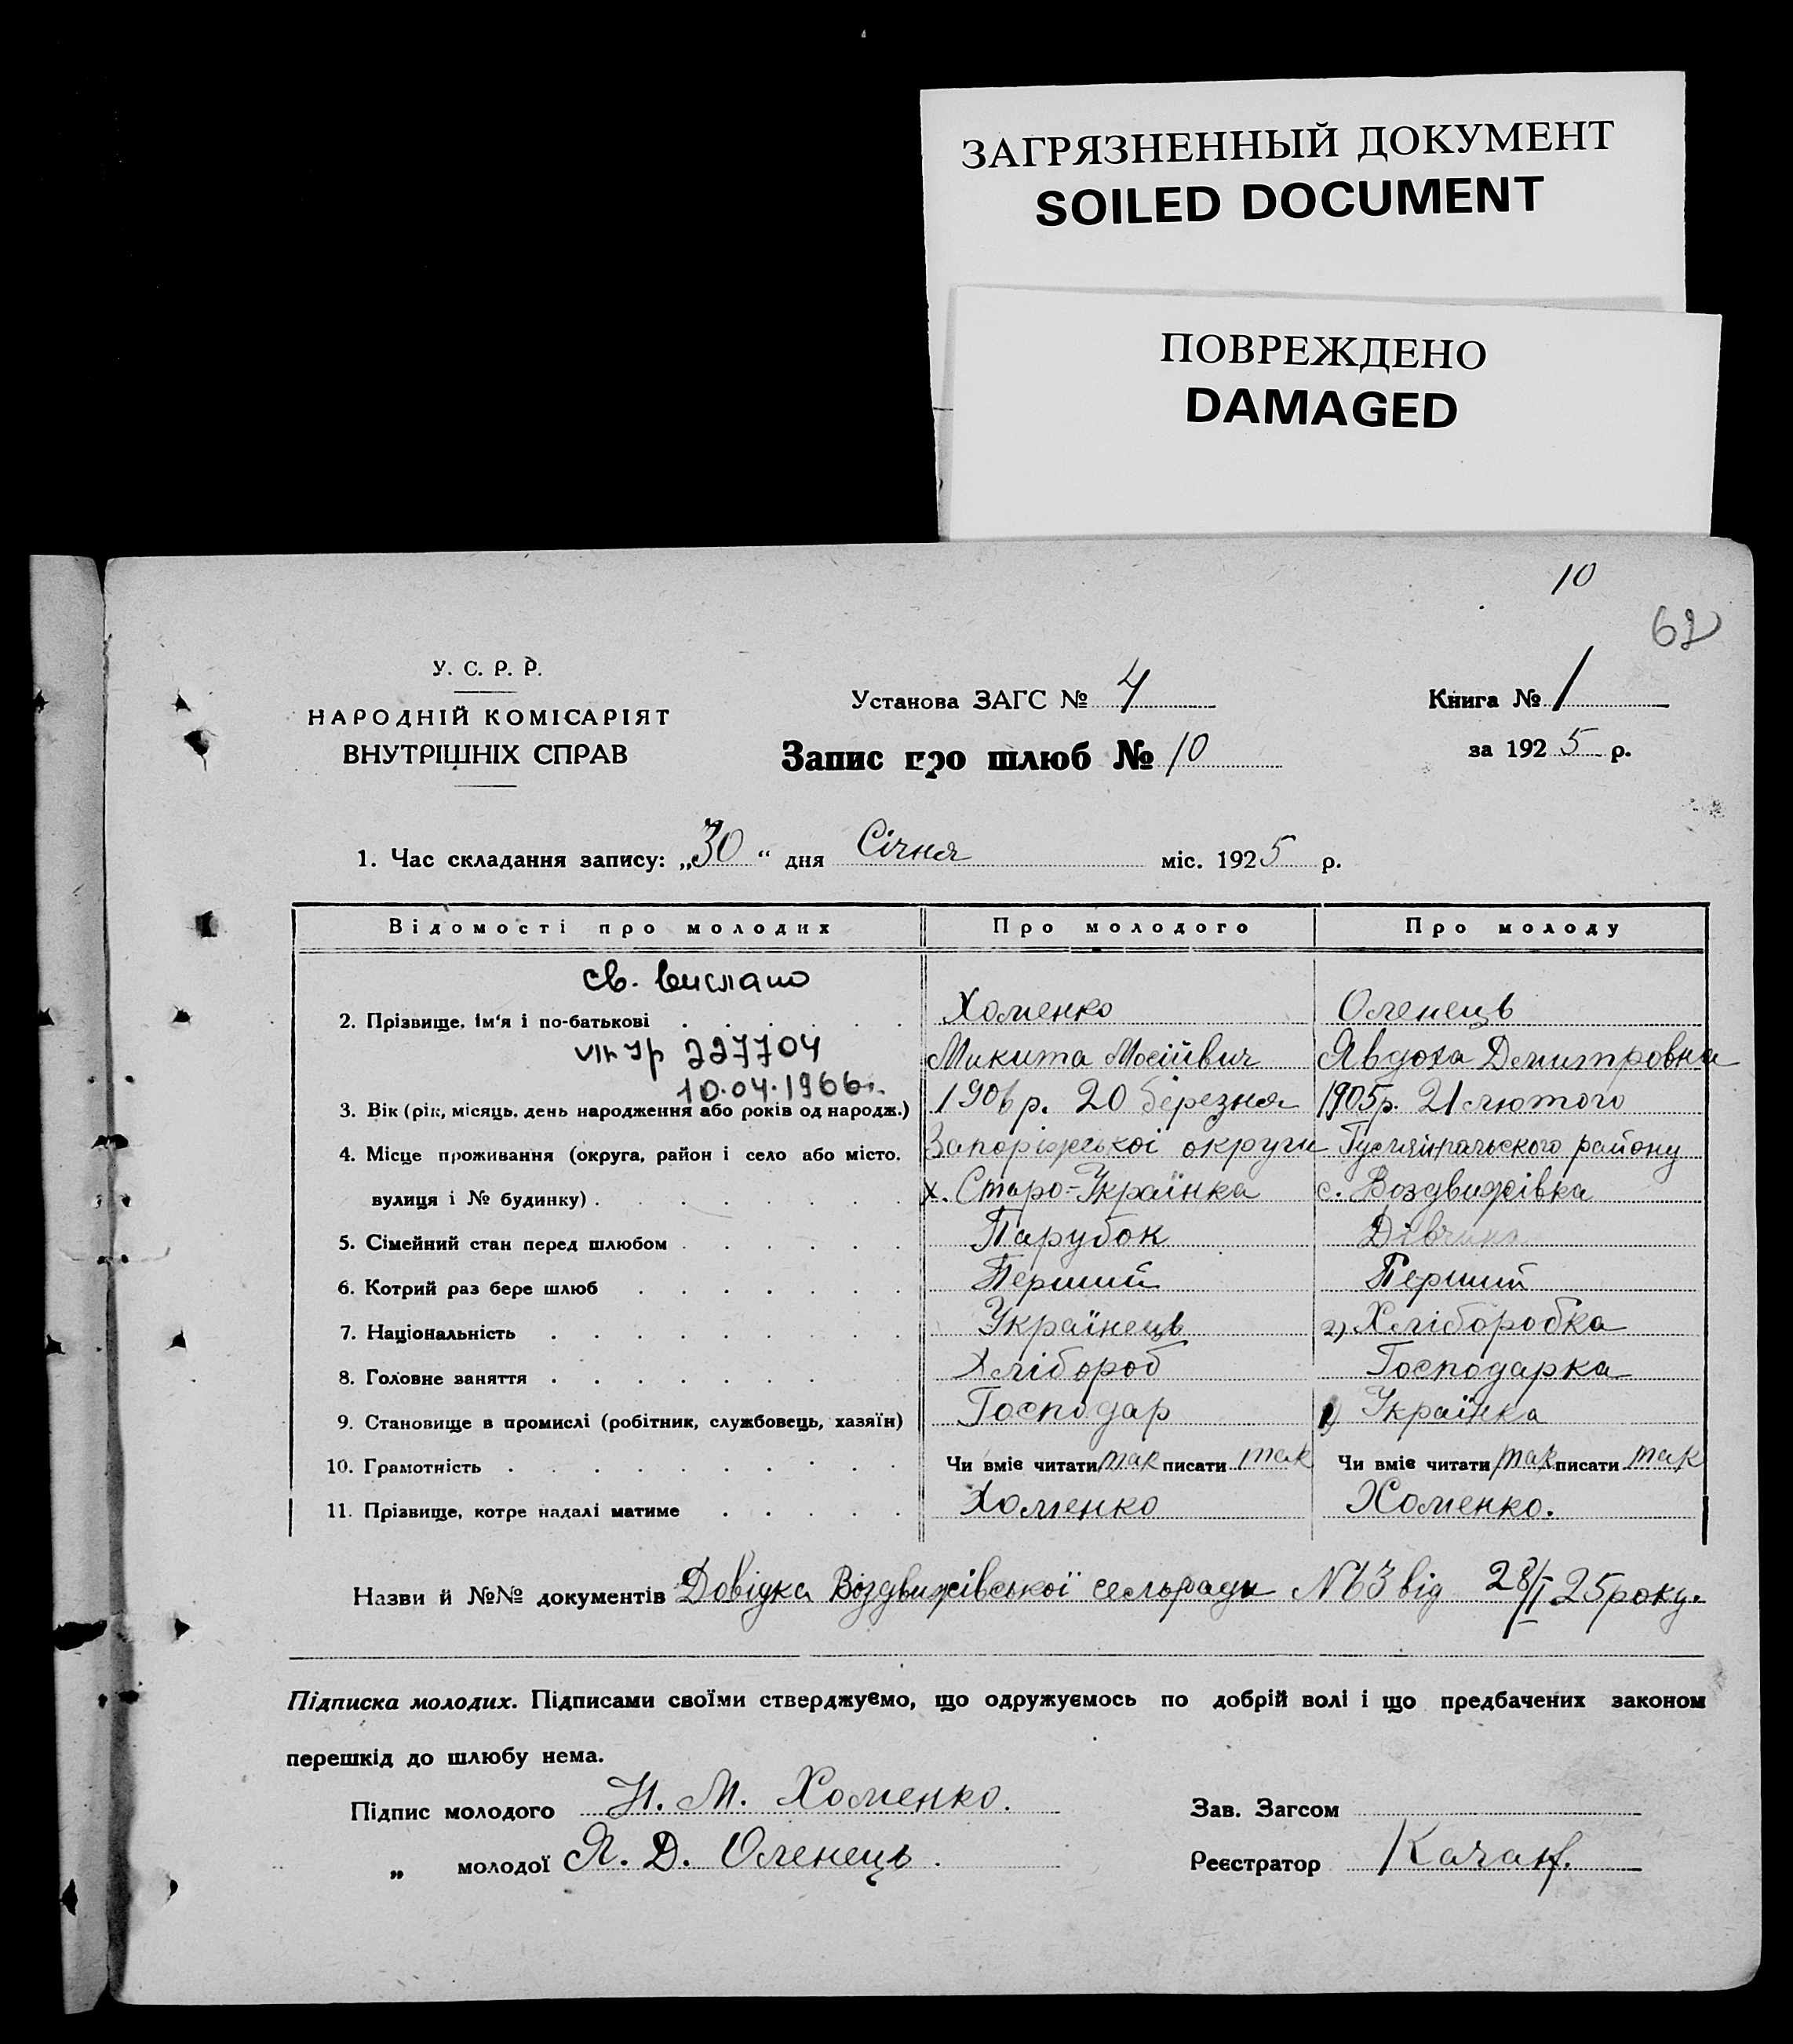 ЗАГРЯЗНЕННЫЙ ДОКУМЕНТ
SOILED DOCUMENT
ПОВРЕЖДЕНО
DAMAGED
10
62
У. С. Р. Р.
НАРОДНІЙ КОМІСАРІЯТ
ВНУТРІШНІХ СПРАВ
Установа ЗАГС № 4
Запис про шлюб № 10
Книга № 1
за 1925 р.
1. Час складання запису: „30“ дня Січня міс. 1925 р.
Відомості про молодих Про молодого Про молоду
св. вислано
2. Прізвище, ім'я і по-батькові Хоменко Оленець
227704 Микита Мосійвич Явдоха Дмитровна
10.04.1966г.
3. Вік (рік, місяць, день народження або років од народж.) 1906 р. 20 березня 1905 р. 21 лютого
4. Місце проживання (округа, район і село або місто, Запоріжської округи Гуляйпільського району
вулиця і № будинку) х. Старо-Українка с. Воздвижівка
5. Сімейний стан перед шлюбом Парубок Дівчина
6. Котрий раз бере шлюб Перший Перший
7. Національність Українець 2) Хліборобка
8. Головне заняття Хлібороб Господарка
9. Становище в промислі (робітник, службовець, хазяїн) Господар 1) Українка
10. Грамотність Чи вміє читати так писати так Чи вміє читати так писати так
11. Прізвище, котре надалі матиме Хоменко Хоменко.
Назви й №№ документів Довідка Воздвижівської сельради N 63 від 28/I 25 року.
Підписка молодих. Підписами своїми стверджуємо, що одружуємось по добрій волі і що предбачених законом
перешкід до шлюбу нема.
Підпис молодого Н. М. Хоменко. Зав. Загсом
„ молодої Я. Д. Оленець. Реєстратор Качан